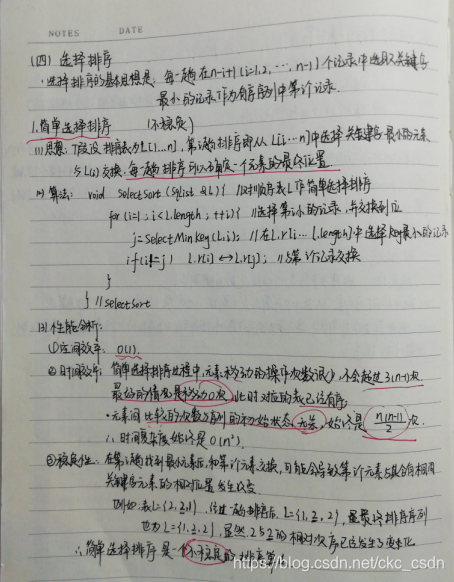 NOTES DATE
(四) 选择排序
·选择排序的基本思想是, 每一趟在n-i+1 (i=1,2,…,n-1) 个记录中选取关键字
最小的记录作为有序序列中第i个记录.
1.简单选择排序 (不稳定)
(1)思想: 假设排序表为L[1…n], 第i趟排序即从L[i…n]中选择关键字最小的元素
与L(i)交换, 每一趟排序可以确定一个元素的最终位置.
(2)算法: void SelectSort (SqList &L) { //对顺序表L作简单选择排序
for (i=1; i<L.length; ++i) { //选择第i小的记录, 并交换到位
j=SelectMinKey(L,i); //在L.r[i…L.length]中选择key最小的记录
if(i!=j) L.r[i]↔L.r[j]; //与第i个记录交换
}
} //SelectSort
(3)性能分析:
①空间效率: O(1).
②时间效率: 简单选择排序过程中, 元素移动的操作次数很少, 不会超过3(n-1)次
最好的情况是移动0次, 此时对应的表已经有序.
·元素间比较的次数与序列的初始状态无关, 始终是 n(n-1)/2 次.
∴时间复杂度始终是O(n²).
③稳定性: 在第i趟找到最小元素后, 和第i个元素交换, 可能会导致第i个元素与其含有相同
关键字元素的相对位置发生改变.
例如: 表L={2,2,1}, 经过一趟排序后 L={1,2,2}, 最终排序序列
也为L={1,2,2}, 显然, 2与2的相对次序已经发生了变化
∴简单选择排序是一个不稳定的排序
https://blog.csdn.net/ckc_csdn